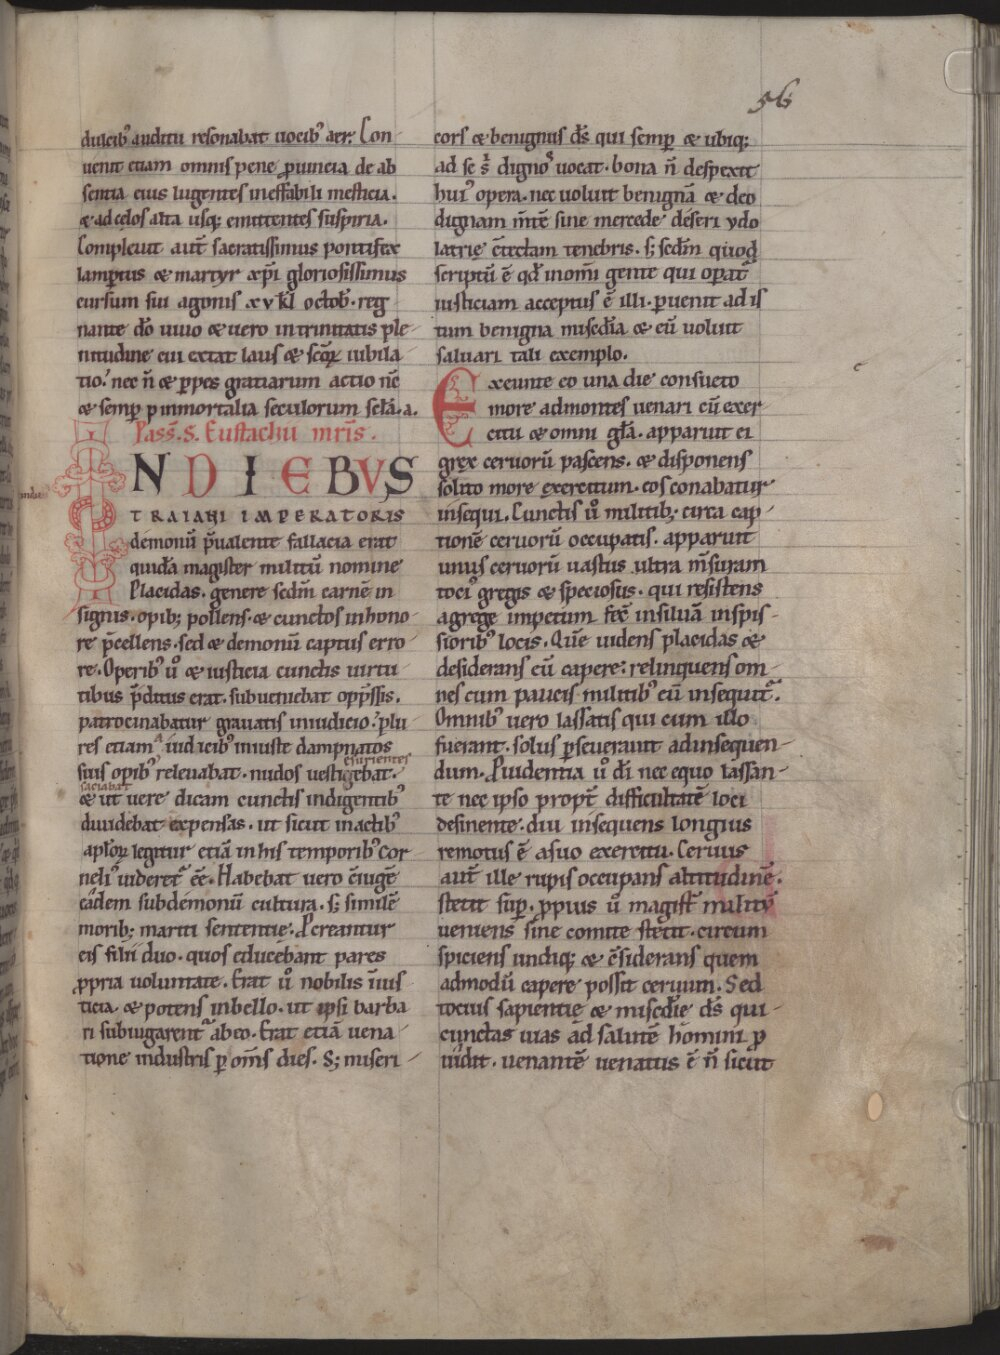 56
dulcib' auditu resonabat uocib' aer. Con-
uenit etiam omnis pene ꝓuincia de ab
sentia eius lugentes ineffabili mesticia.
& ad celos alta usq; emittentes suspiria.
Compleuit aut̄ sacratissimus pontifex
lamptus & martyr xp̄i gloriosissimus
cursum sui agonis xv kl̄ octob'. reg
nante dō uiuo & uero in trinitatis ple-
nitudine cui extat laus & scōꝝ iubila-
tio. nec n̄ & ꝑpes gratiarum actio nē
& semꝑ ꝑ inmortalia seculorum sclā. a.
Pass̄. S. Eustachii mr̄is.
IN DIEBVS
TRAIANI IMPERATORIS
demonū p̄ualente fallacia erat
quidā magister militū nomine
Placidas. genere sedm̄ carnē in
signis. opib; pollens. & cunctos in hono-
re p̄cellens. sed & demonū captus erro-
re. Operib' u̇ & iusticia cunctis uirtu-
tibus p̄ditus erat. subueniebat opp̄ssis.
patrocinabatur grauatis in iudicio. plu-
res etiam a iudicib' iniuste dampnatos
esurientes
suis opib' releuabat. nudos uestiebat.
saciabat
& ut uere dicam cunctis indigentib'
diuidebat expensas. ut sicut in actib'
aplōꝝ legitur etiā in his temporib' cor-
neli' uideret̄ eē. Habebat uero c̄iugē
eādem sub demonū cultura. s; similē
morib; mariti sententie. Pcreantur
eis filii duo. quos educebant pares
ꝓpria uoluntate. Erat u̇ nobilis ī ius-
ticia. & potens in bello. ut ipsi barba
ri subiugarent̄ ab eo. Erat etiā uena-
tione industris ꝑ om̄s dies. S; miseri-
cors & benignus dс̄ qui semꝑ & ubiq;
ad se s̄ dignos uocat. bona n̄ despexit
hui' opera. nec uoluit benignā & deo
dignam m̄tē sine mercede deseri ydo
latrię c̄tectam tenebris. s; sedm̄ quod
scriptū ē qd̄ in om̄i gente qui opat̄
iusticiam acceptus ē illi. ꝑuenit ad is
tum benigna misedīa & eū uoluit
saluari tali exemplo.
Exeunte eo una die consueto
more ad montes uenari cū exer-
citu & omni glā. apparuit ei
grex ceruorū pascens. & disponens
solito more exercitum. eos conabatur
insequi. Cunctis u̇ militib; circa cap-
tionē ceruorū occupatis. apparuit
unus ceruorū uastus ultra m̄suram
toci' gregis & speciosus. qui resistens
a grege impetum fec̄ in siluā in spis-
sioribꝰ locis. Quē uidens placidas &
desiderans eū capere: relinquens om-
nes cum paucis militib' eū insequit̄.
Omnib' uero lassatis qui cum illo
fuerant. solus ꝑseuerauit ad insequen-
dum. Puidentia u̇ dī nec equo lassan-
te nec ipso propt̄ difficultatē loci
desinente. diu insequens longius
remotus ē a suo exercitu. Ceruus
aut̄ ille rupis occupans altitudinē.
stetit suꝑ. ꝓpius u̇ magist̄ militū
ueniens sine comite stetit. circum
spiciens undiq; & c̄siderans quem
admodū capere possit ceruum. Sed
tocius sapientię & misedīe dс̄ qui-
cunctas uias ad salutē homini ꝓ
uidit. uenantē uenatus ē n̄ sicut